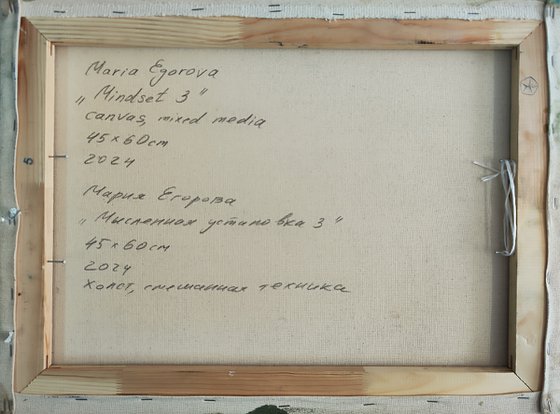 Maria Egorova
„ Mindset 3 "
canvas, mixed media
45 x 60 cm
2024
Мария Егорова
„ Мысленная установка 3 "
45 x 60 cm
2024
Холст, смешанная техника